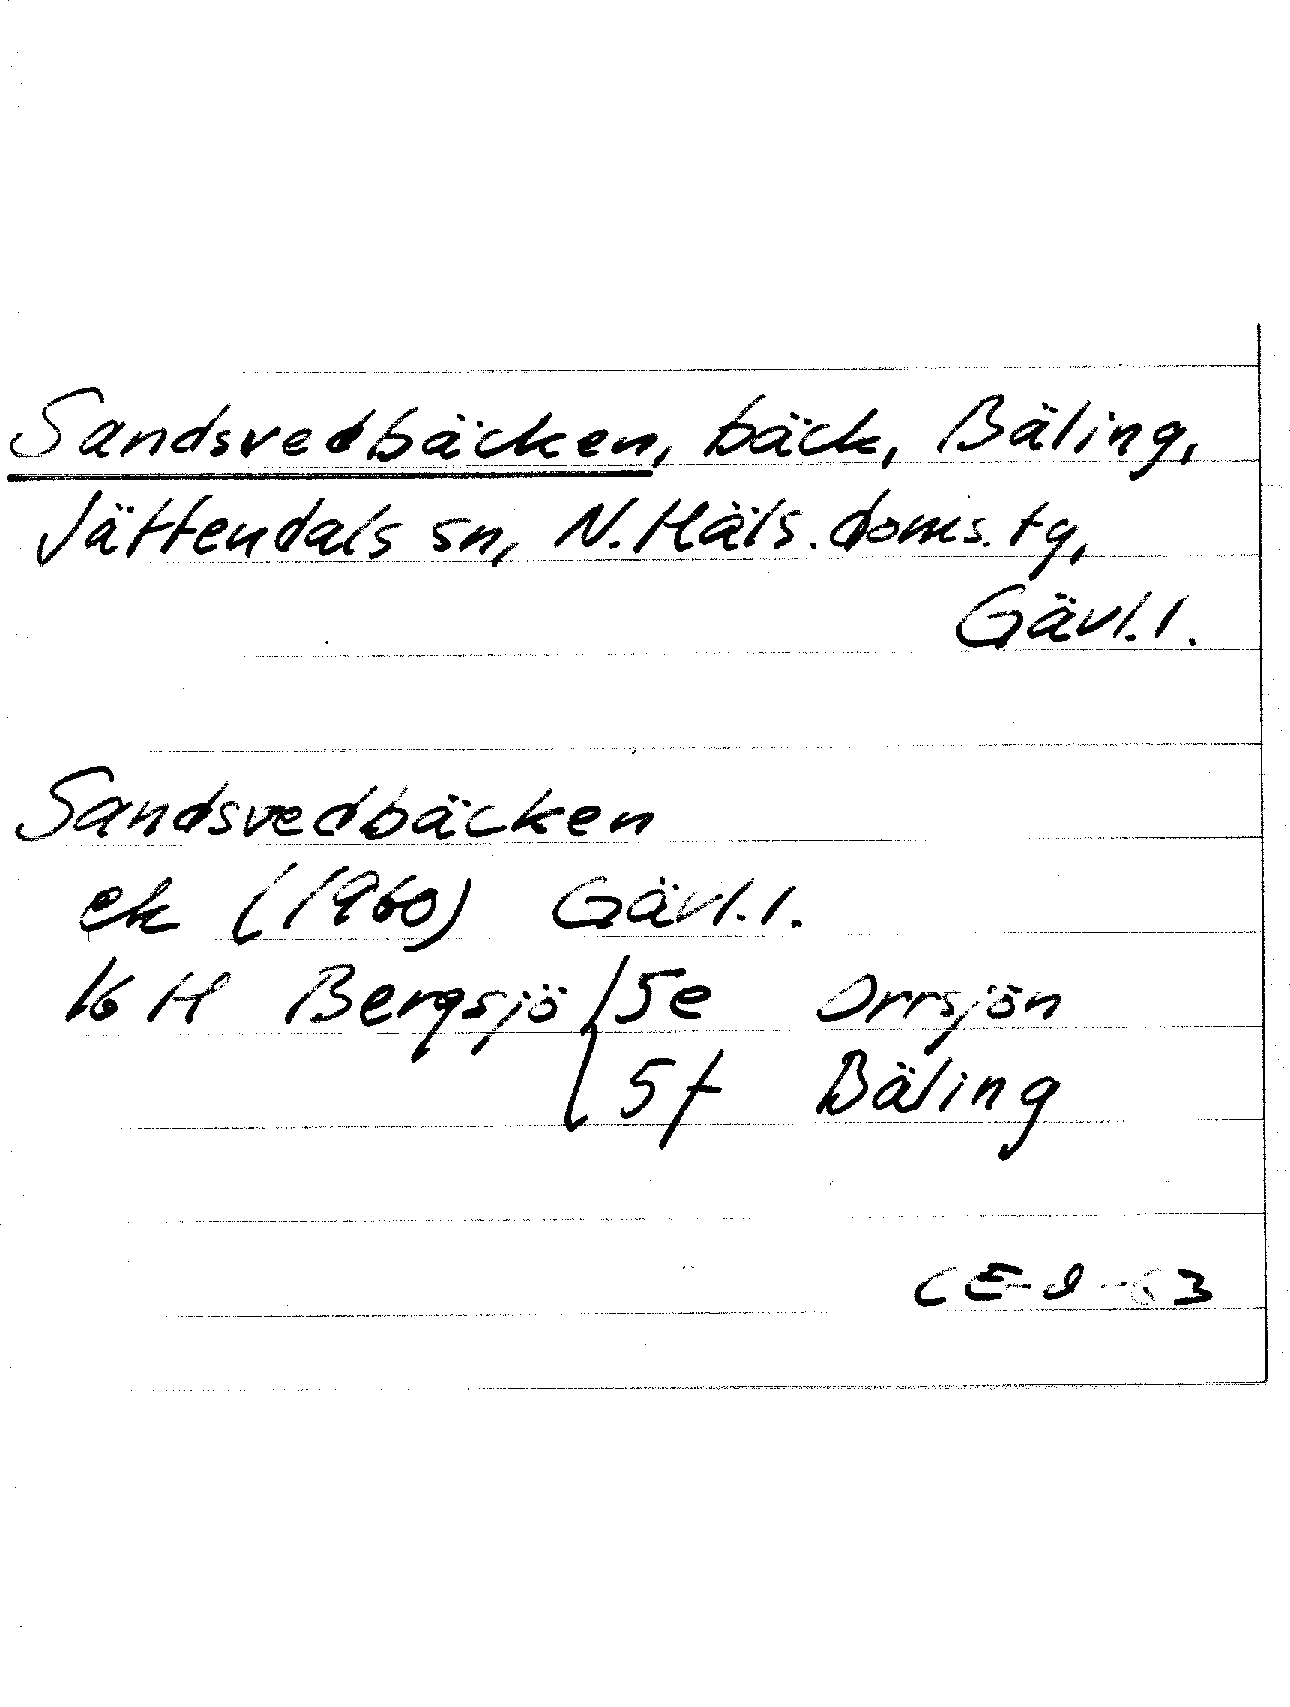 Sandsvedbäcken, bäck, Bäling,
Jättendals sn, N. Häls. doms. tg,
Gävl. l.
Sandsvedbäcken
ek (1960) Gävl. l.
16 H Bergsjö { 5e Orrsjön
5f Bäling